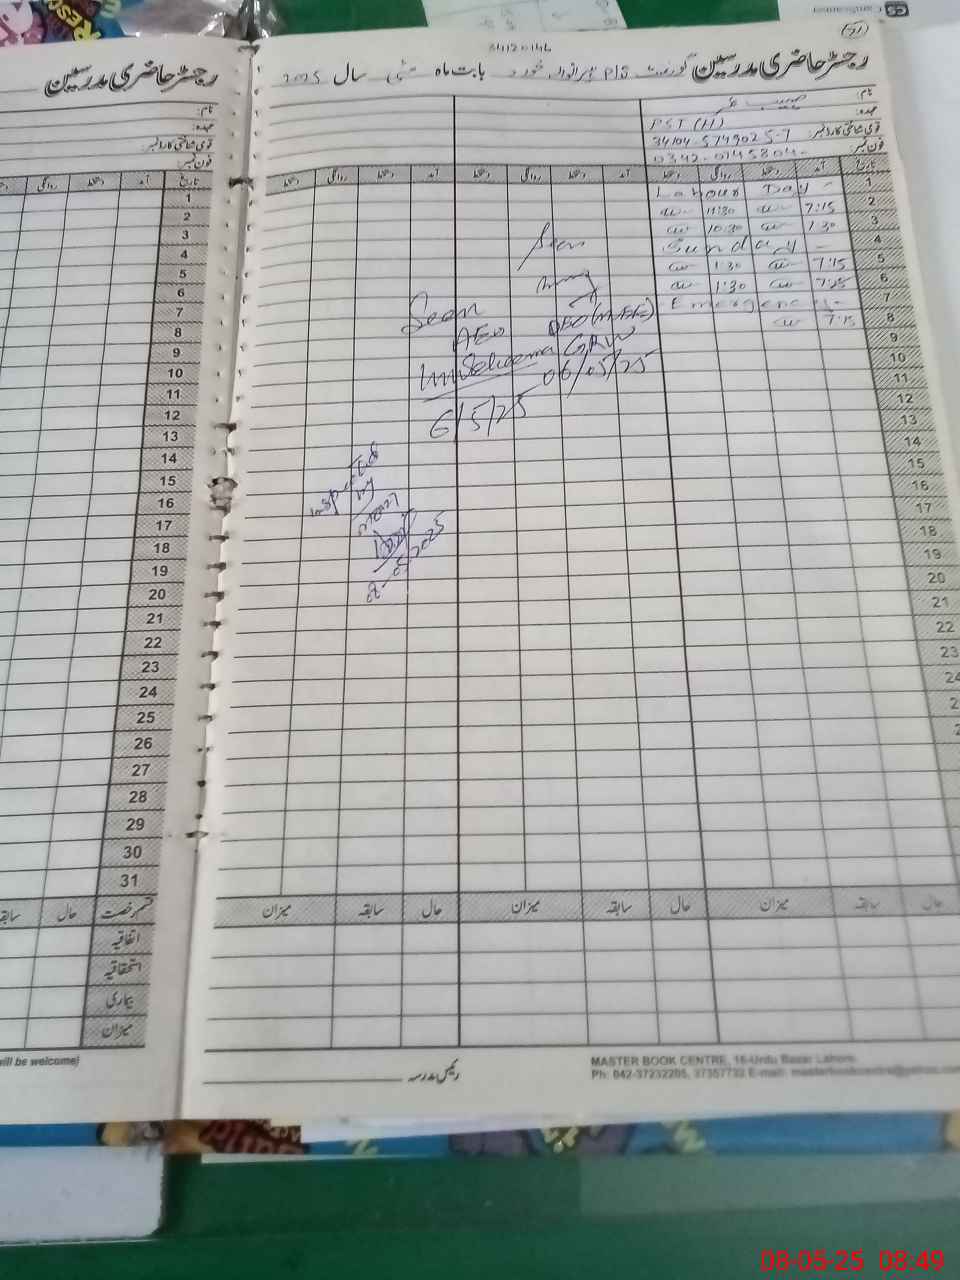 (71)
34120146
رجسٹر حاضری مدرسین گورنمنٹ P/S خورد بابت ماہ مئی سال 2025
نام:
عہدہ: PST (H)
قومی شناختی کارڈ نمبر: 34104-5749025-7
فون نمبر: 0342-0745804
تاریخ آمد دستخط روانگی دستخط آمد دستخط روانگی دستخط آمد دستخط روانگی دستخط
1 Labour Day -
2 7:15 11:30
3 7:30 10:30
4 Sunday -
5 7:15 1:30
6 7:25 1:30
7 Emergency -
8 7:15
9
10
11
12
13
14
15
16
17
18
19
20
21
22
23
24
Seen
Seen
AEO
GRW
06/05/25
6/5/25
Inspected
by
8-05-2025
حال سابقہ میزان حال سابقہ میزان حال سابقہ میزان
رئیس مدرسہ
MASTER BOOK CENTRE, 16-Urdu Bazar Lahore.
Ph: 042-37232205, 37357732 E-mail: masterbookcentre@yahoo.com
رجسٹر حاضری مدرسین
نام:
عہدہ:
قومی شناختی کارڈ نمبر:
فون نمبر:
تاریخ آمد دستخط روانگی دستخط
1
2
3
4
5
6
7
8
9
10
11
12
13
14
15
16
17
18
19
20
21
22
23
24
25
26
27
28
29
30
31
قسم رخصت حال سابقہ
اتفاقیہ
استحقاقیہ
بیماری
میزان
will be welcome)
CamScanner CS
08-05-25 08:49